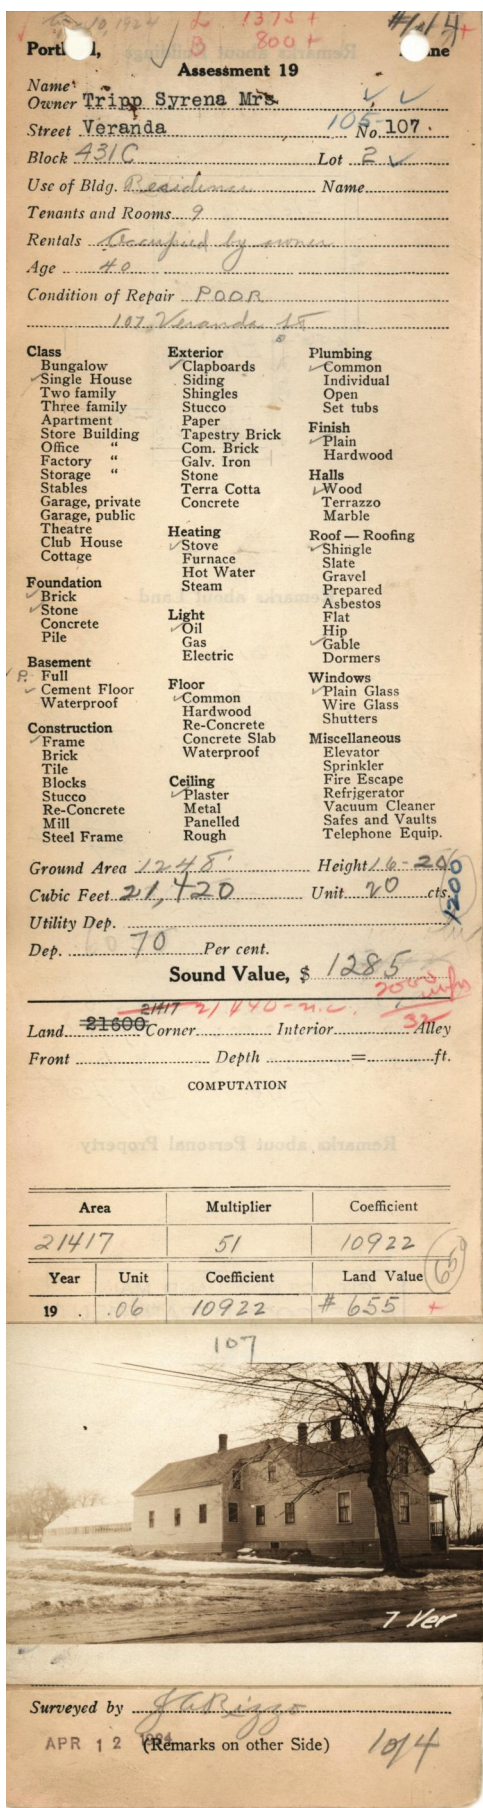 10, 1924
L 1375 +
B 800 +
#1 of 4
+
Portland, Maine
Assessment 19
Name
Owner Tripp Syrena Mrs.
Street Veranda 105- No. 107.
Block 431C Lot 2
Use of Bldg. Residence Name
Tenants and Rooms 9
Rentals Occupied by owner
Age 40
Condition of Repair POOR
107 Veranda St
Class
Bungalow
Single House
Two family
Three family
Apartment
Store Building
Office "
Factory "
Storage "
Stables
Garage, private
Garage, public
Theatre
Club House
Cottage
Foundation
Brick
Stone
Concrete
Pile
Basement
P. Full
Cement Floor
Waterproof
Construction
Frame
Brick
Tile
Blocks
Stucco
Re-Concrete
Mill
Steel Frame
Exterior
Clapboards
Siding
Shingles
Stucco
Paper
Tapestry Brick
Com. Brick
Galv. Iron
Stone
Terra Cotta
Concrete
Heating
Stove
Furnace
Hot Water
Steam
Light
Oil
Gas
Electric
Floor
Common
Hardwood
Re-Concrete
Concrete Slab
Waterproof
Ceiling
Plaster
Metal
Panelled
Rough
Plumbing
Common
Individual
Open
Set tubs
Finish
Plain
Hardwood
Halls
Wood
Terrazzo
Marble
Roof — Roofing
Shingle
Slate
Gravel
Prepared
Asbestos
Flat
Hip
Gable
Dormers
Windows
Plain Glass
Wire Glass
Shutters
Miscellaneous
Elevator
Sprinkler
Fire Escape
Refrigerator
Vacuum Cleaner
Safes and Vaults
Telephone Equip.
Ground Area 1248' Height 16-20
Cubic Feet 21,420 Unit 20 cts.
1200
Utility Dep.
Dep. 70 Per cent.
Sound Value, $ 1285
2000
32
21417 21440-n.c.
Land 21600 Corner Interior Alley
Front Depth = ft.
COMPUTATION
Area Multiplier Coefficient
21417 51 10922
Year Unit Coefficient Land Value
650
19 . .06 10922 # 655 +
107
7 Ver
Surveyed by J A Rizzo
APR 12 1924 (Remarks on other Side) 1 of 4